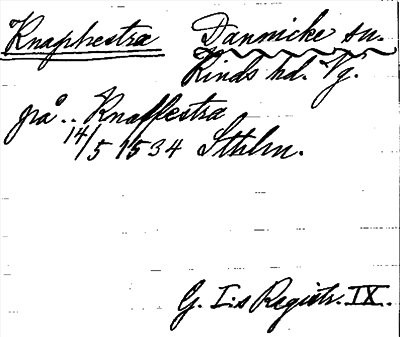 Knaphestra Dannicke sn.
Kinds hd. Vg.
på .. Knaffestra
14/5 1534 Sthlm.
G. I:s Registr. IX.